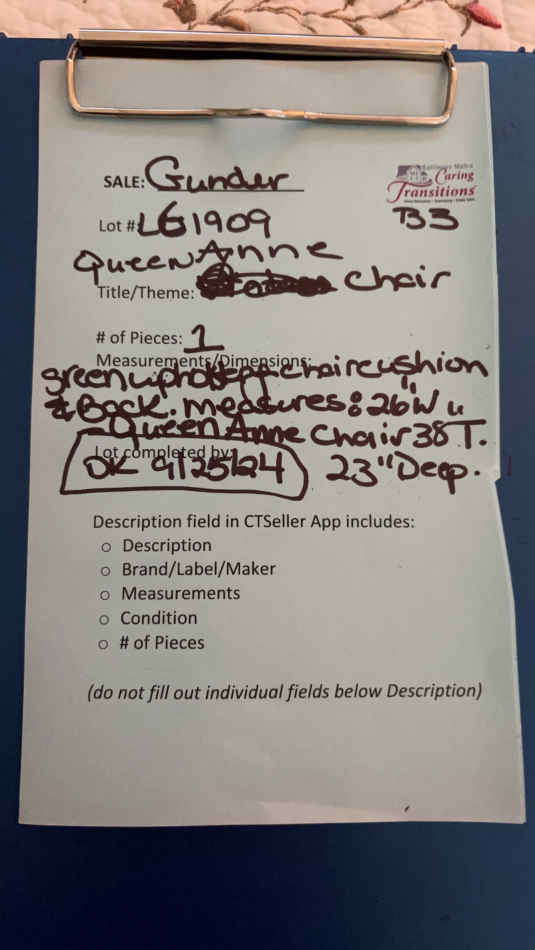 SALE: Gunder
Baltimore Metro
Caring
Transitions
Lot #: LG1909
B3
Queen Anne
Title/Theme: Chair
# of Pieces: 1
Measurements/Dimensions:
green chair cushion
& Back. measures: 26"W
Queen Anne Chair 38"T.
Lot completed by:
DK 9/25/24 23"Deep.
Description field in CTSeller App includes:
○ Description
○ Brand/Label/Maker
○ Measurements
○ Condition
○ # of Pieces
(do not fill out individual fields below Description)